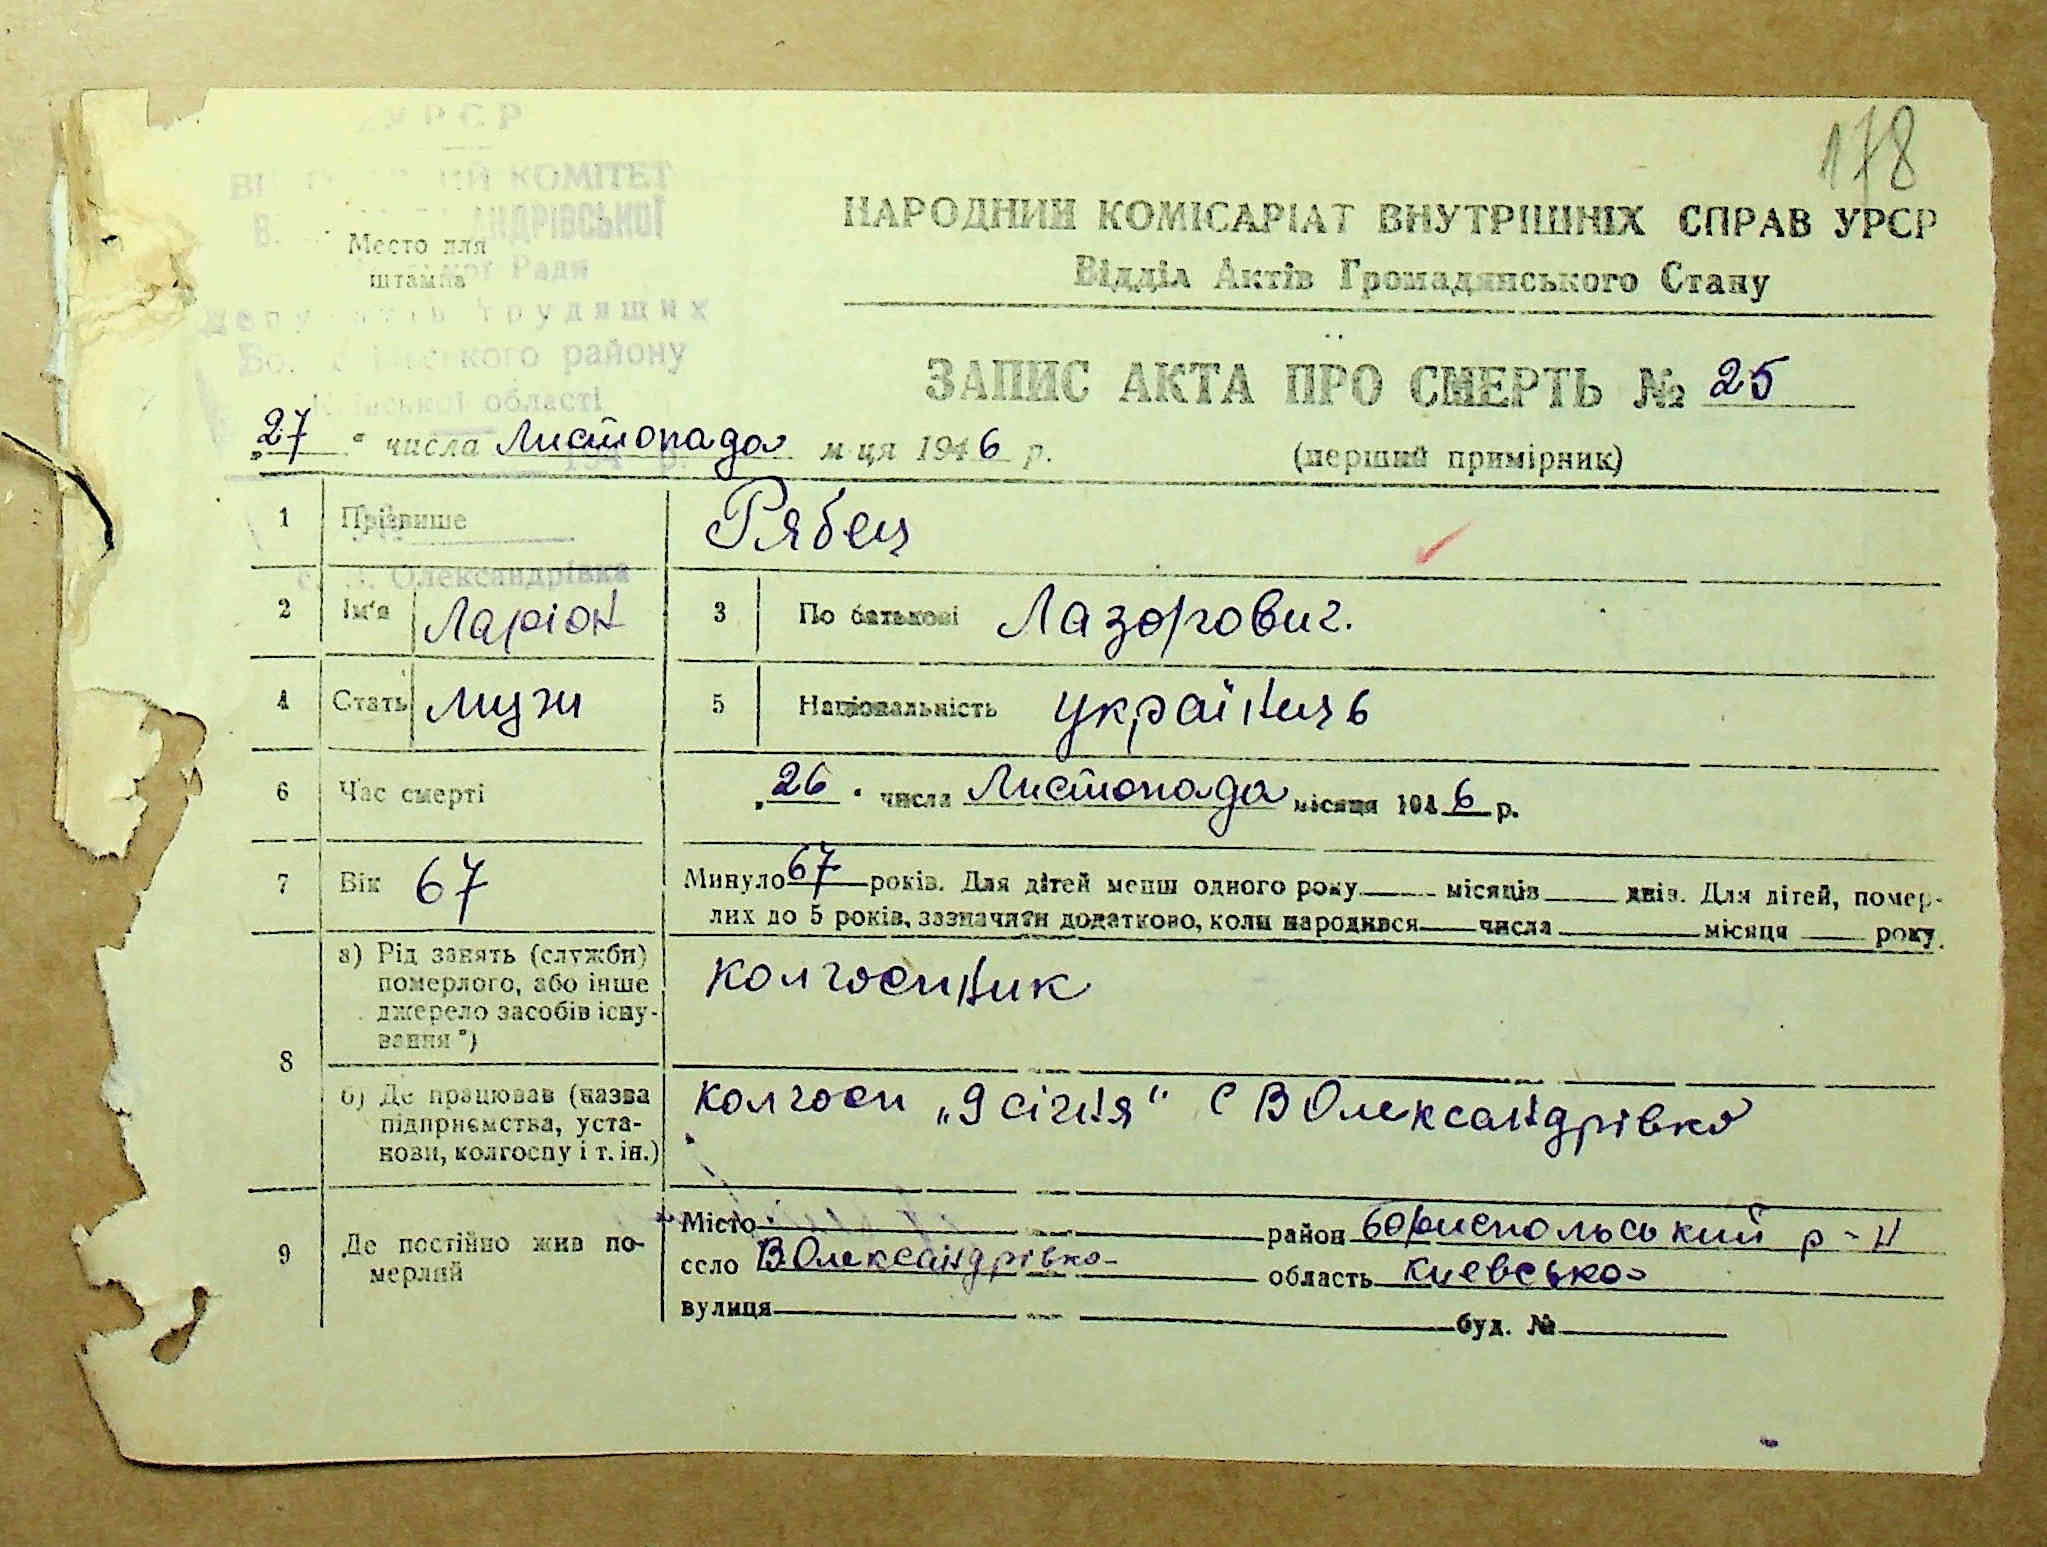 178
УРСР
КОМІТЕТ
Место для
штампа
Ради
трудящих
району
області
НАРОДНИЙ КОМІСАРІАТ ВНУТРІШНІХ СПРАВ УРСР
Відділ Актів Громадянського Стану
ЗАПИС АКТА ПРО СМЕРТЬ № 25
(перший примірник)
„27“ числа Листопада м-ця 1946 р.
1 Прізвище Рябец
с. В. Олександрівка
2 Ім'я Ларіон 3 По батькові Лазорович.
4 Стать мужи 5 Національність українць
6 Час смерті „26“ числа Листопада місяця 1946 р.
7 Вік 67 Минуло 67 років. Для дітей менш одного року місяців днів. Для дітей, помер-
лих до 5 років, зазначити додатково, коли народився числа місяця року.
8 а) Рід занять (служби)
померлого, або інше
джерело засобів існу-
вання*)
колгоспник
б) Де працював (назва
підприємства, уста-
нови, колгоспу і т. ін.)
колгосп „9 січня“ с В Олександрівка
9 Де постійно жив по-
мерлий
Місто район бориспольський р-н
село ВОлександрівка область Киевська
вулиця буд. №